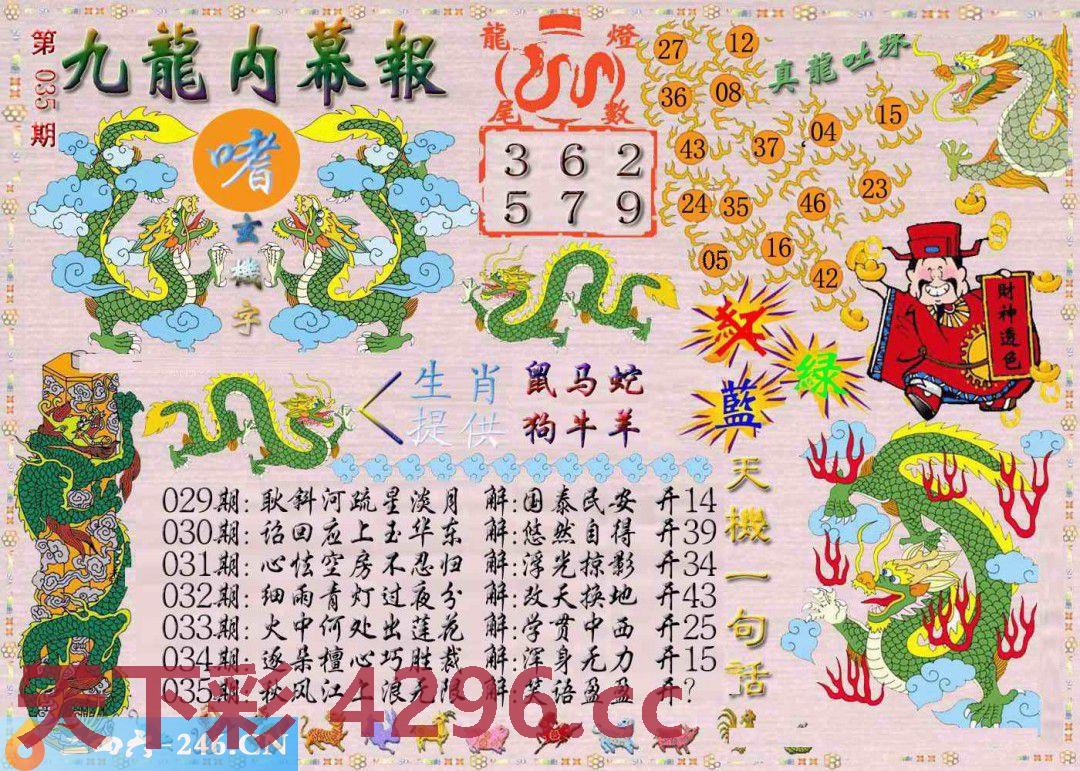 第035期
九龍内幕報
嗜
玄機字
龍尾燈數
3 6 2
5 7 9
27 12
36 08
43 37 04 15
24 35 46 23
05 16 42
真龍吐珠
財神透色
紅
藍
綠
生肖 鼠马蛇
提供 狗牛羊
029期: 耿斜河疏星淡月 解:国泰民安 开14
030期: 诏回应上玉华东 解:悠然自得 开39
031期: 心怯空房不忍归 解:浮光掠影 开34
032期: 细雨青灯过夜分 解:改天换地 开43
033期: 火中何处出莲花 解:学贯中西 开25
034期: 逐朵檀心巧胜裁 解:浑身无力 开15
035期: 秋风江上浪无限 解:笑语盈盈 开?
天機一句话
天下彩 4296.cc
246.CN